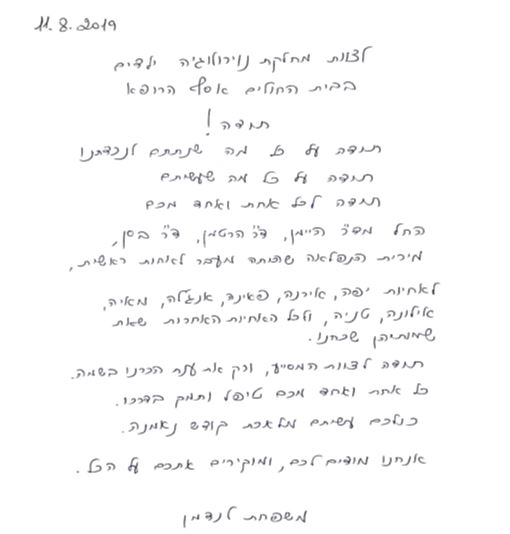 11.8.2019
לצוות מחלקת נוירולוגיה ילדים
בבית החולים אסף הרופא
תודה!
תודה על כל מה שנתתם לנכדתנו
תודה על כל מה שעשיתם
תודה לכל אחת ואחד מכם
החל מד"ר היימן, ד"ר הרטמן, ד"ר בסן,
מירית הנפלאה שהיתה מעבר לאחות ראשית,
לאחיות יפה, אירנה, פאינה, אנג'לה, מאיה,
אילונה, טניה, ולכל האחיות האחרות שאת
שמותיהן שכחנו.
תודה לצוות המסייע, ורק את ענת הכרנו בשמה.
כל אחת ואחד מכם טיפל ותמך בדרכו.
כולכם עשיתם מלאכת קודש נאמנה.
אנחנו מודים לכם, ומוקירים אתכם על הכל.
משפחת לנדמן